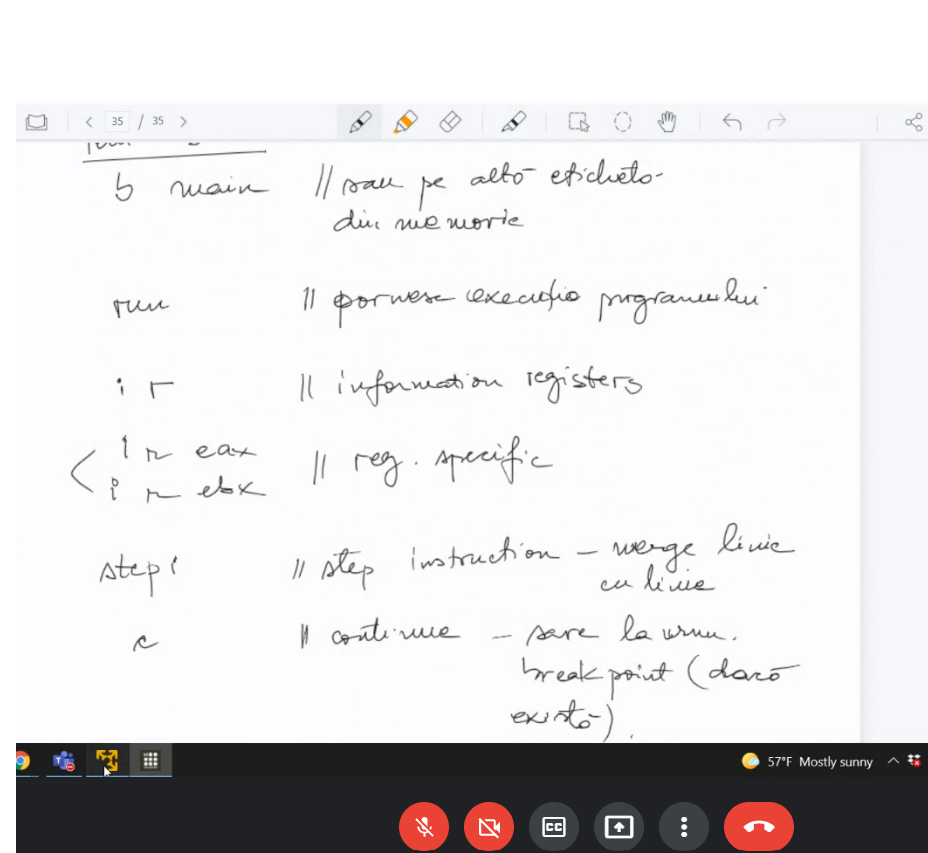 35 / 35
b main // sau pe altă etichetă
din memorie
run // pornesc execuția programului
i r // information registers
i r eax // reg. specific
i r ebx
stepi // step instruction – merge linie
cu linie
c // continue – sare la urm.
breakpoint (dacă
există).
57°F Mostly sunny
CC